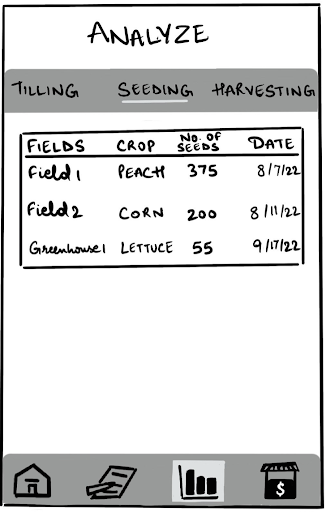 ANALYZE
TILLING SEEDING HARVESTING
FIELDS CROP NO. OF SEEDS DATE
Field 1 PEACH 375 8/7/22
Field 2 CORN 200 8/11/22
Greenhouse 1 LETTUCE 55 9/17/22
$